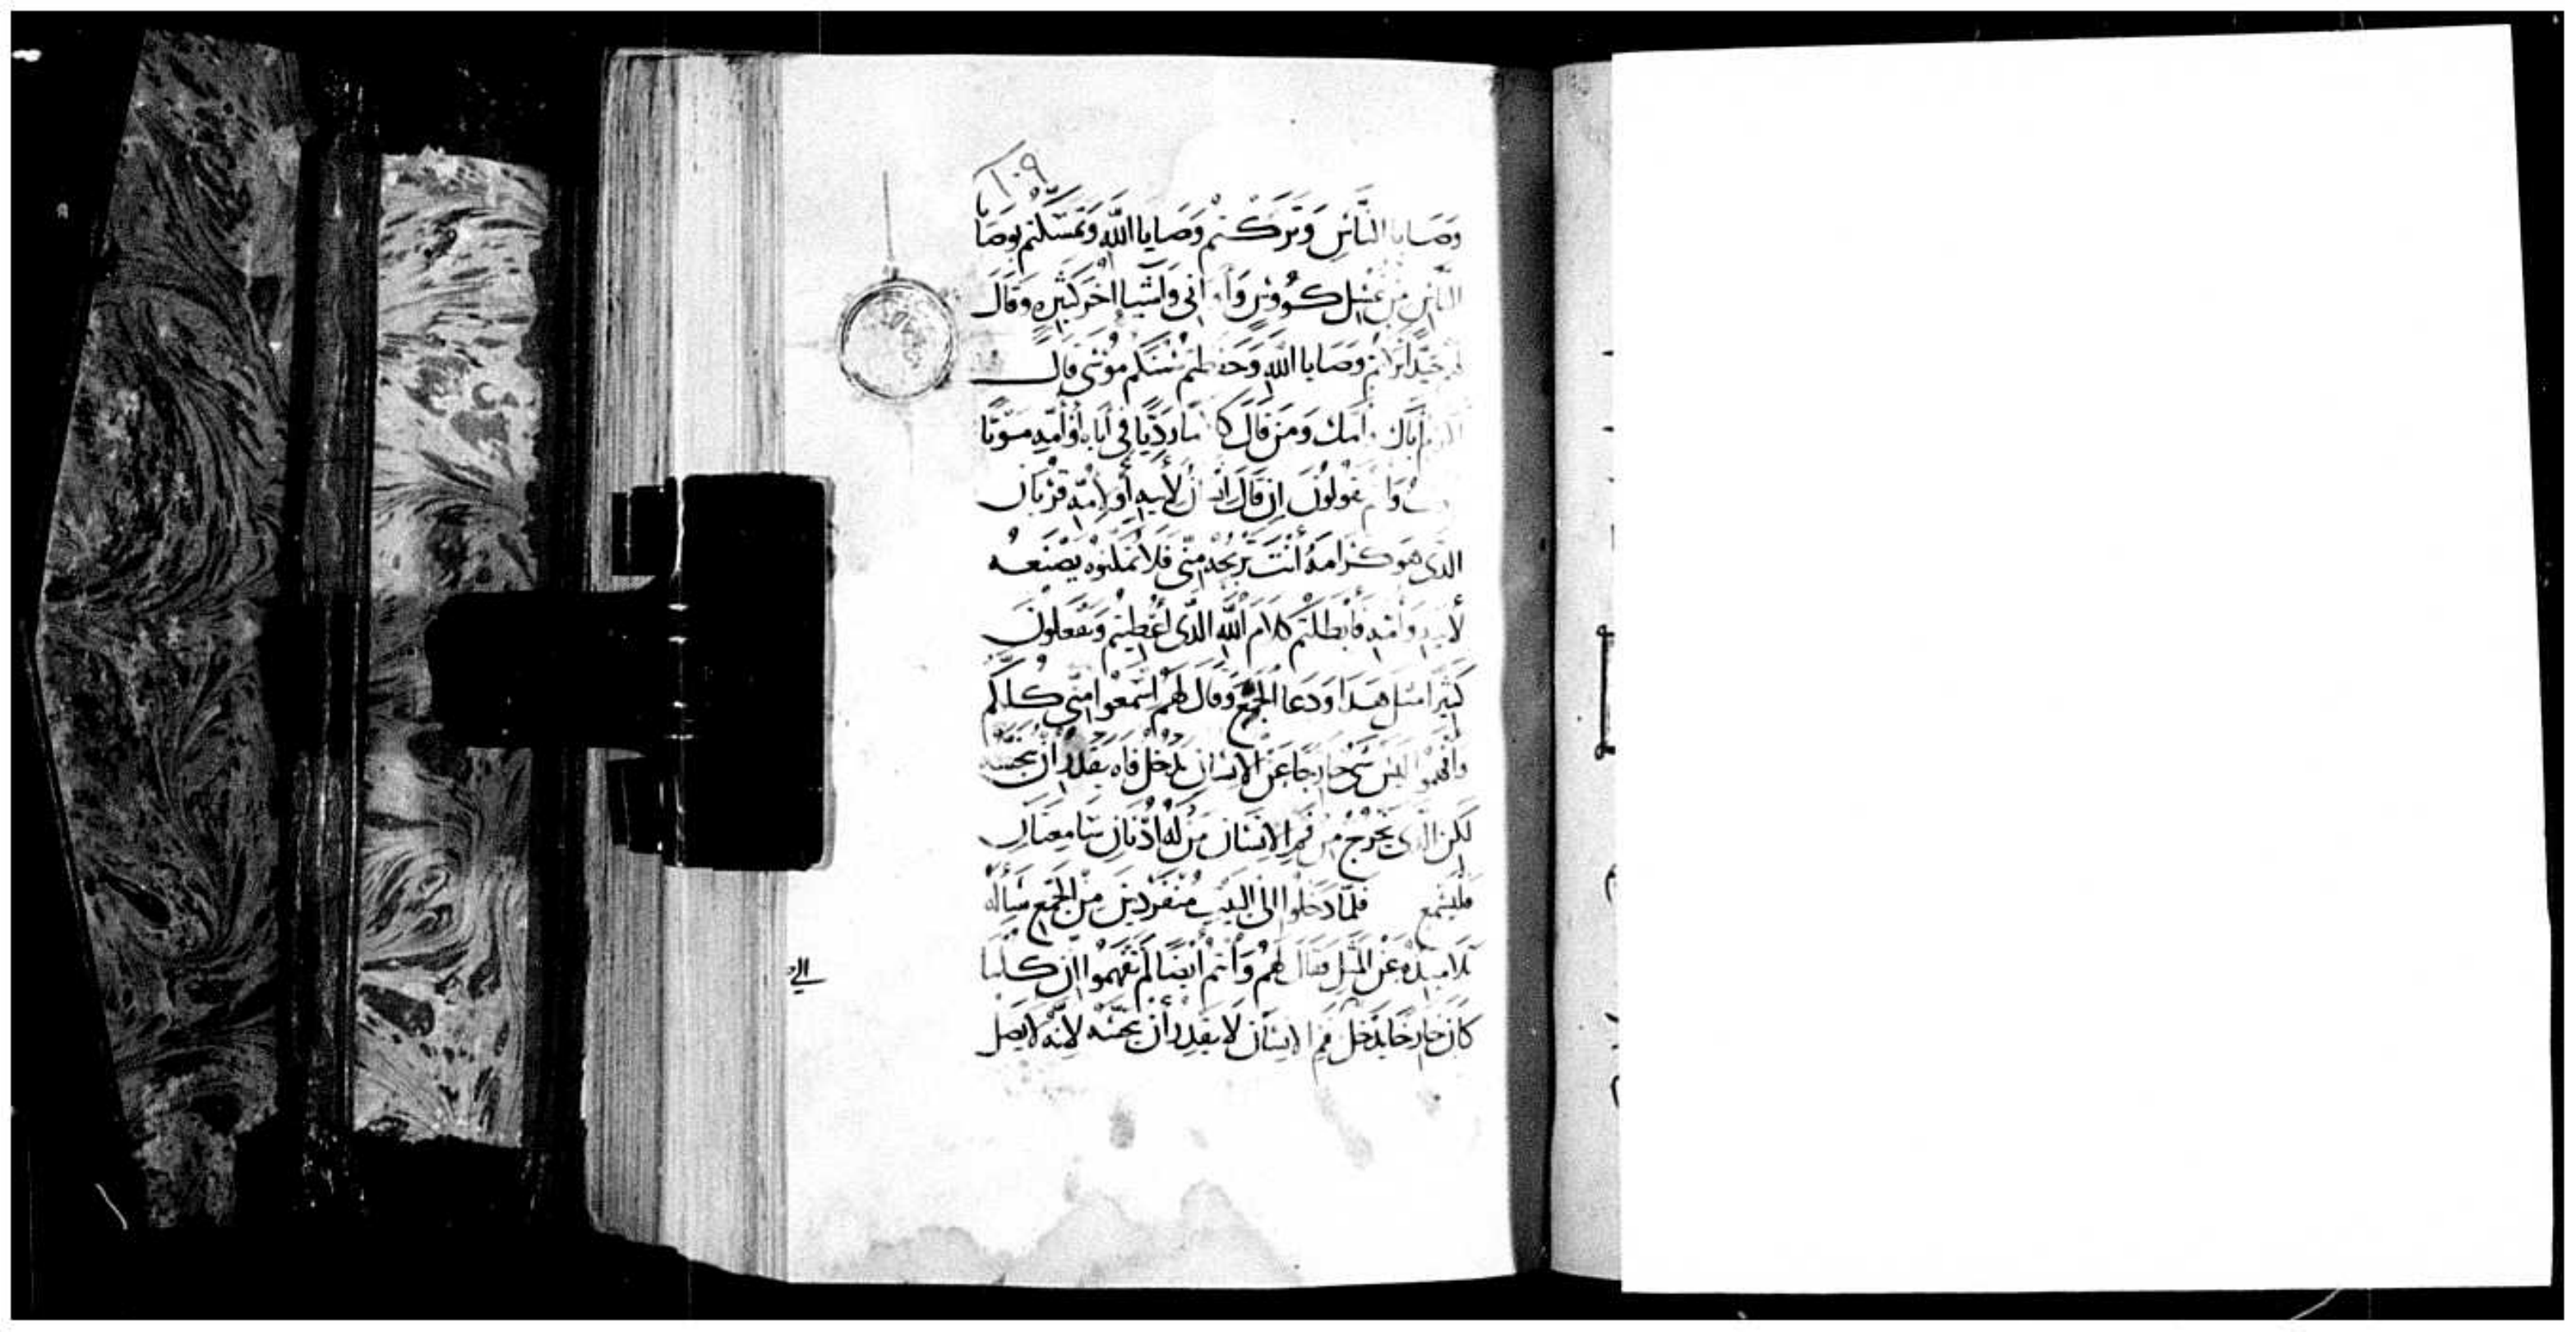 ١٠٩
وَصَايا النَّاسِ وَتَرَكتم وَصَايا اللَّهِ وَتمسّكتم بوصَايا
النَّاسِ مِن غسْلِ كؤوسٍ وَأواني وَأشيا أُخَر كثيرةٍ وَقَالَ
وَصَايا اللَّهِ وَحفظتم سُنّتكم موسَى قال
أباك وامّك وَمَن قَالَ كلامًا رديًّا في أباه أو أمّه مَوْتًا
وأنتم تقولونَ إن قالَ إنسان لأبيه أو لأمّه قربان
الذى هو كرامةُ أنتَ تربحُه منّى فلا تمكنوه يصْنعه
لأبيه وَأمّه فأبطلتم كلامَ اللَّه الذى أعطيتم وَتفعلون
كثيرًا مثل هذا وَدَعا الجمع وَقال لهم اسمعوا منّي كلكم
وافهموا ليس شى خارجًا عن الإنسان يدخل فاه يقدر أن ينجّسه
لكن الذى يخرجُ من فمِ الإنسان مَن له اذنان سَامعتان
فليسْمع فلمّا دخلوا الى البيت منفردين من الجمع سَأله
تلاميذه عن المثل فقال لهم وَأنتم أيضًا لم تفهموا ان كلما
كان خارجًا يدخل فم الانسان لا يقدر أن ينجّسه لأنّه لا يصل
الى